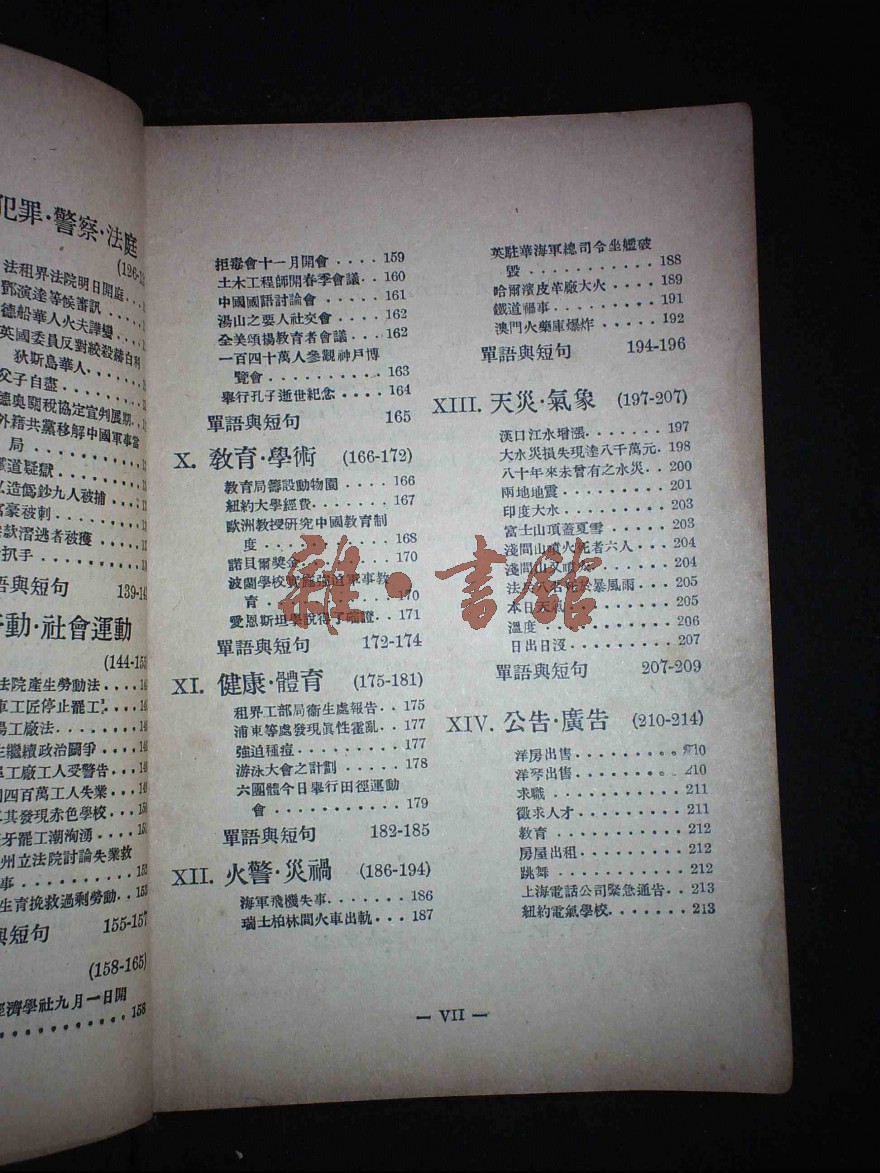 犯罪·警察·法庭
法租界法院明日開庭...
鄧演達等候審訊.....
德船華人火夫譁變....
英國委員反對絞殺赫白利
狄斯島華人...
父子自盡.....
德奧關稅協定宣判展期..
外籍共黨移解中國軍事當
局.......
道疑獄......
造僞鈔九人被捕....
豪被刺......
款潛逃者被獲.....
扒手.......
語與短句 139-14
動·社會運動
(144-15
法院產生勞動法....14
車工匠停止罷工...14
工廠法.....14
繼續政治鬪爭....14
工廠工人受警告...14
四百萬工人失業...
其發現赤色學校...150
牙罷工潮洶湧....15
州立法院討論失業救
事........152
生育挽救過剩勞動..153
與短句 155-157
(158-165)
經濟學社九月一日開
...........158
拒毒會十一月開會....159
土木工程師開春季會議..160
中國國語討論會.....161
湯山之要人社交會....162
全美頌揚教育者會議...162
一百四十萬人參觀神戶博
覽會.........163
舉行孔子逝世紀念....164
單語與短句 165
X. 敎育·學術 (166-172)
教育局籌設動物園....166
紐約大學經費......167
歐洲教授研究中國教育制
度..........168
諾貝爾獎金.......170
波蘭學校實施強迫軍事教
育..........170
愛恩斯坦學說得了確證..171
單語與短句 172-174
XI. 健康·體育 (175-181)
租界工部局衛生處報告..175
浦東等處發現眞性霍亂..177
強迫種痘........177
游泳大會之計劃.....178
六團體今日舉行田徑運動
會..........179
單語與短句 182-185
XII. 火警·災禍 (186-194)
海軍飛機失事......186
瑞士柏林間火車出軌...187
英駐華海軍總司令坐艦破
毀..........188
哈爾濱皮革廠大火....189
鐵道禍事........191
澳門火藥庫爆炸.....192
單語與短句 194-196
XIII. 天災·氣象 (197-207)
漢口江水增漲......197
大水災損失現達八千萬元.198
八十年來未曾有之水災..200
兩地地震........201
印度大水........203
富士山頂蓋夏雪.....203
淺間山噴火死者六人...204
淺間山又噴火......204
法兵八名死於暴風雨...205
本日天氣........205
溫度..........206
日出日沒........207
單語與短句 207-209
XIV. 公告·廣告 (210-214)
洋房出售........210
洋琴出售........210
求職..........211
徵求人才........211
敎育..........212
房屋出租........212
跳舞..........212
上海電話公司緊急通告..213
紐約電氣學校......213
— VII —
雜·書館